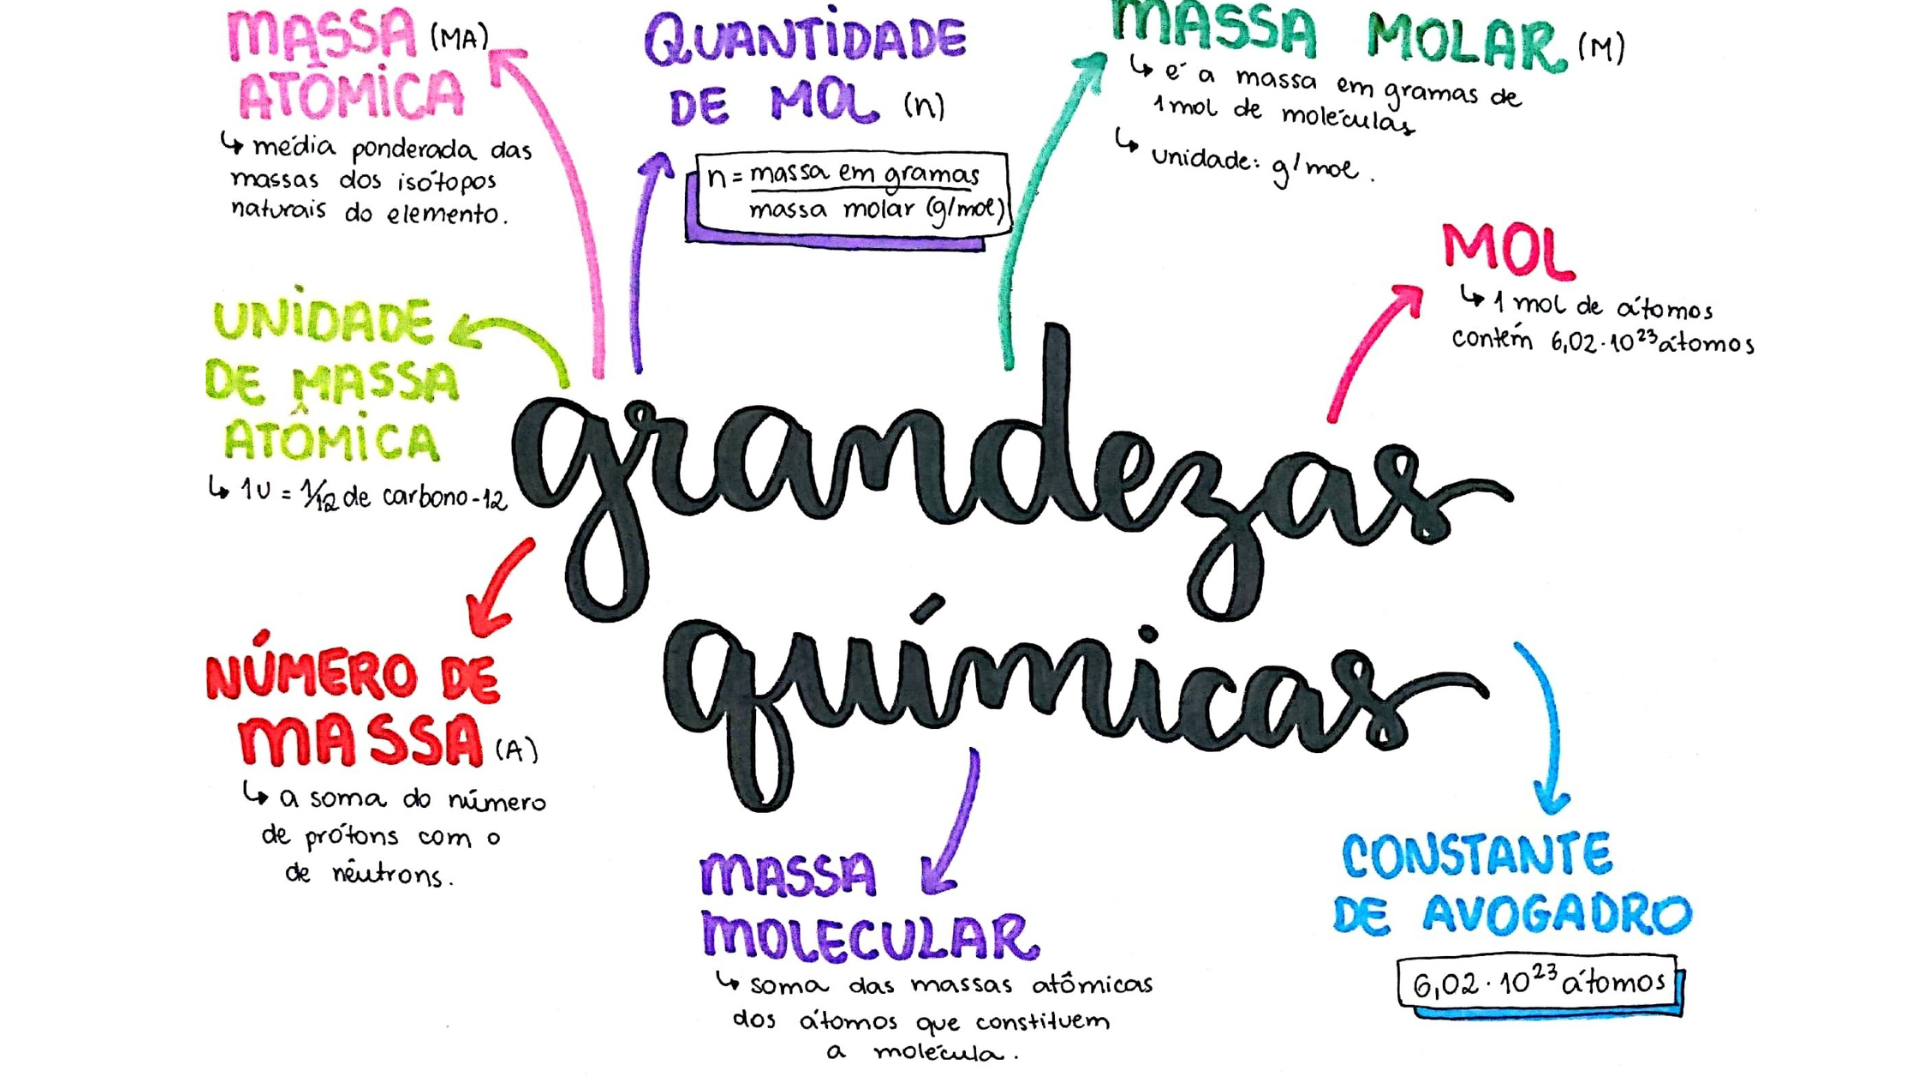 MASSA (MA)
ATÔMICA
↳ média ponderada das
massas dos isótopos
naturais do elemento.
QUANTIDADE
DE MOL (n)
n = massa em gramas
massa molar (g/mol)
MASSA MOLAR (M)
↳ é a massa em gramas de
1 mol de moléculas
↳ unidade: g/mol.
MOL
↳ 1 mol de átomos
contém 6,02 · 10²³ átomos
UNIDADE
DE MASSA
ATÔMICA
↳ 1U = 1/12 de carbono-12
grandezas
químicas
NÚMERO DE
MASSA (A)
↳ a soma do número
de prótons com o
de nêutrons.
MASSA
MOLECULAR
↳ soma das massas atômicas
dos átomos que constituem
a molécula.
CONSTANTE
DE AVOGADRO
6,02 · 10²³ átomos